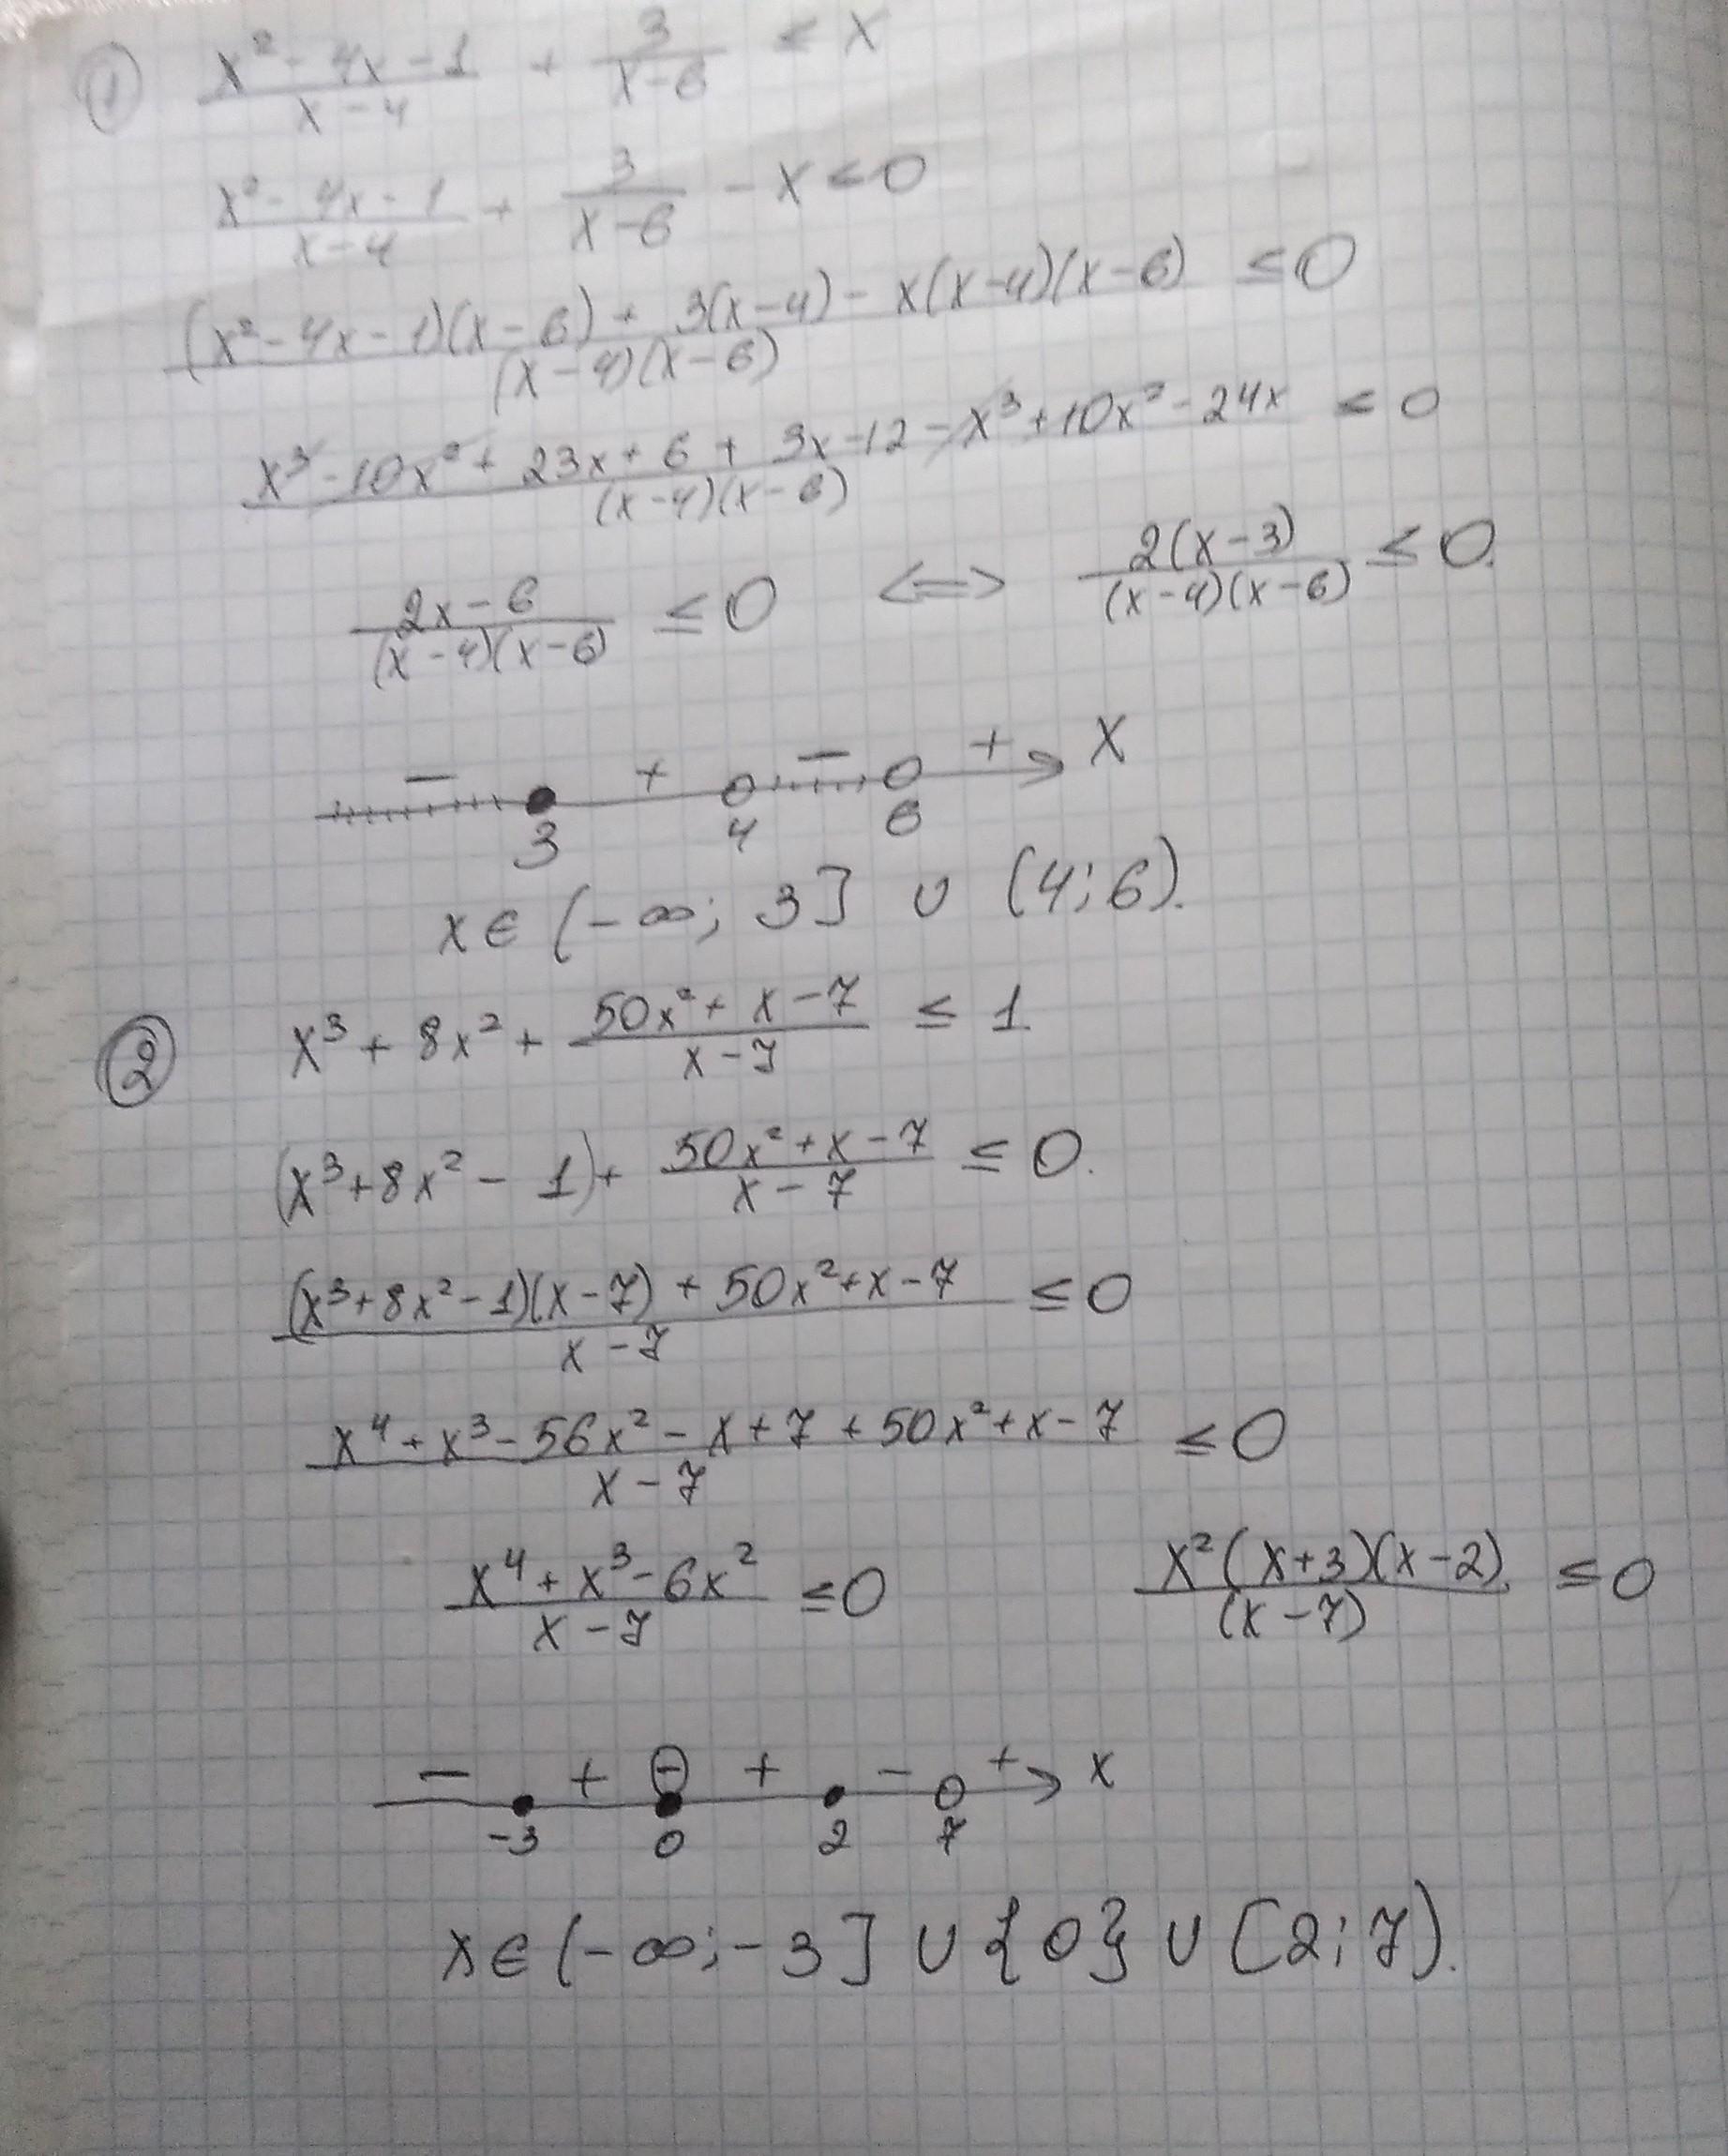 ① (x² - 4x - 1)/(x - 4) + 3/(x - 6) ≤ x
(x² - 4x - 1)/(x - 4) + 3/(x - 6) - x ≤ 0
((x² - 4x - 1)(x - 6) + 3(x - 4) - x(x - 4)(x - 6))/((x - 4)(x - 6)) ≤ 0
(x³ - 10x² + 23x + 6 + 3x - 12 - x³ + 10x² - 24x)/((x - 4)(x - 6)) ≤ 0
(2x - 6)/((x - 4)(x - 6)) ≤ 0 <=> 2(x - 3)/((x - 4)(x - 6)) ≤ 0.
- + - + x
3 4 6
x ∈ (-∞; 3] ∪ (4; 6).
② x³ + 8x² + (50x² + x - 7)/(x - 7) ≤ 1.
(x³ + 8x² - 1) + (50x² + x - 7)/(x - 7) ≤ 0.
((x³ + 8x² - 1)(x - 7) + 50x² + x - 7)/(x - 7) ≤ 0
(x⁴ + x³ - 56x² - x + 7 + 50x² + x - 7)/(x - 7) ≤ 0
(x⁴ + x³ - 6x²)/(x - 7) ≤ 0 (x²(x + 3)(x - 2))/((x - 7)) ≤ 0
- + ⊖ + - + x
-3 0 2 7
x ∈ (-∞; -3] ∪ {0} ∪ [2; 7).